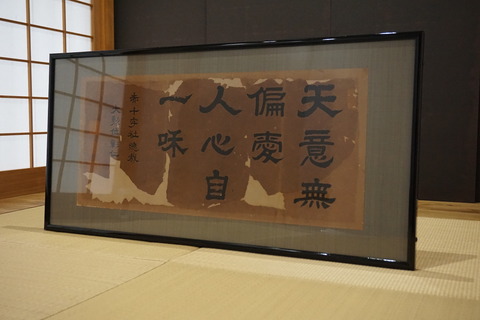 天意無
偏愛
人心自
一咊
赤十字社總裁